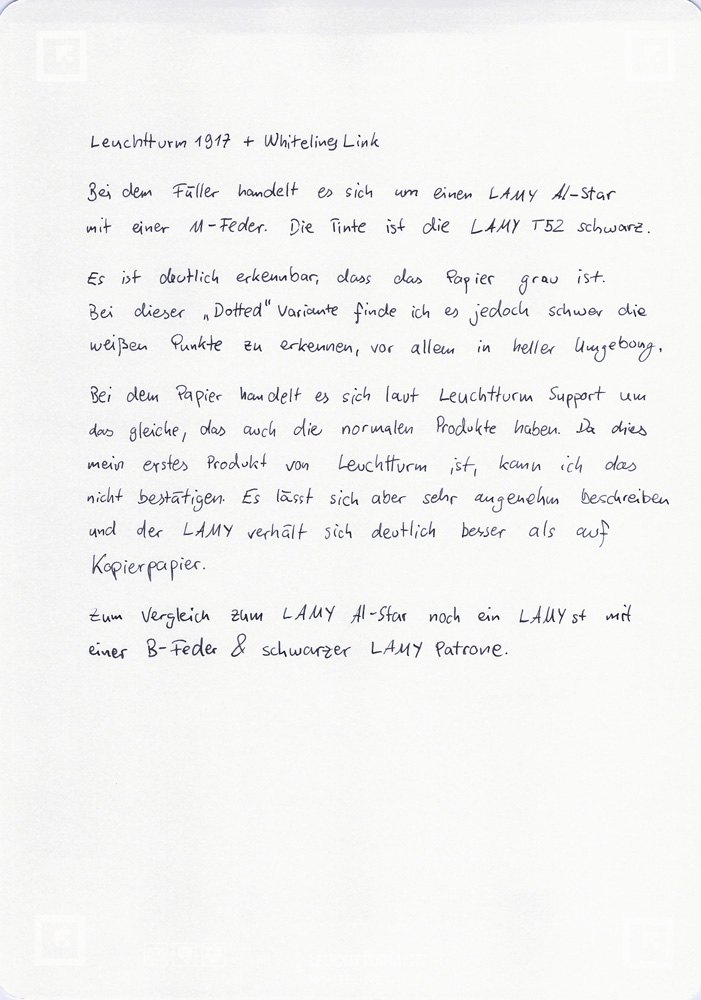 Leuchtturm 1917 + Whitelines Link
Bei dem Füller handelt es sich um einen LAMY Al-Star
mit einer M-Feder. Die Tinte ist die LAMY T52 schwarz.
Es ist deutlich erkennbar, dass das Papier grau ist.
Bei dieser „Dotted" Variante finde ich es jedoch schwer die
weißen Punkte zu erkennen, vor allem in heller Umgebung.
Bei dem Papier handelt es sich laut Leuchtturm Support um
das gleiche, das auch die normalen Produkte haben. Da dies
mein erstes Produkt von Leuchtturm ist, kann ich das
nicht bestätigen. Es lässt sich aber sehr angenehm beschreiben
und der LAMY verhält sich deutlich besser als auf
Kopierpapier.
Zum Vergleich zum LAMY Al-Star noch ein LAMY st mit
einer B-Feder & schwarzer LAMY Patrone.